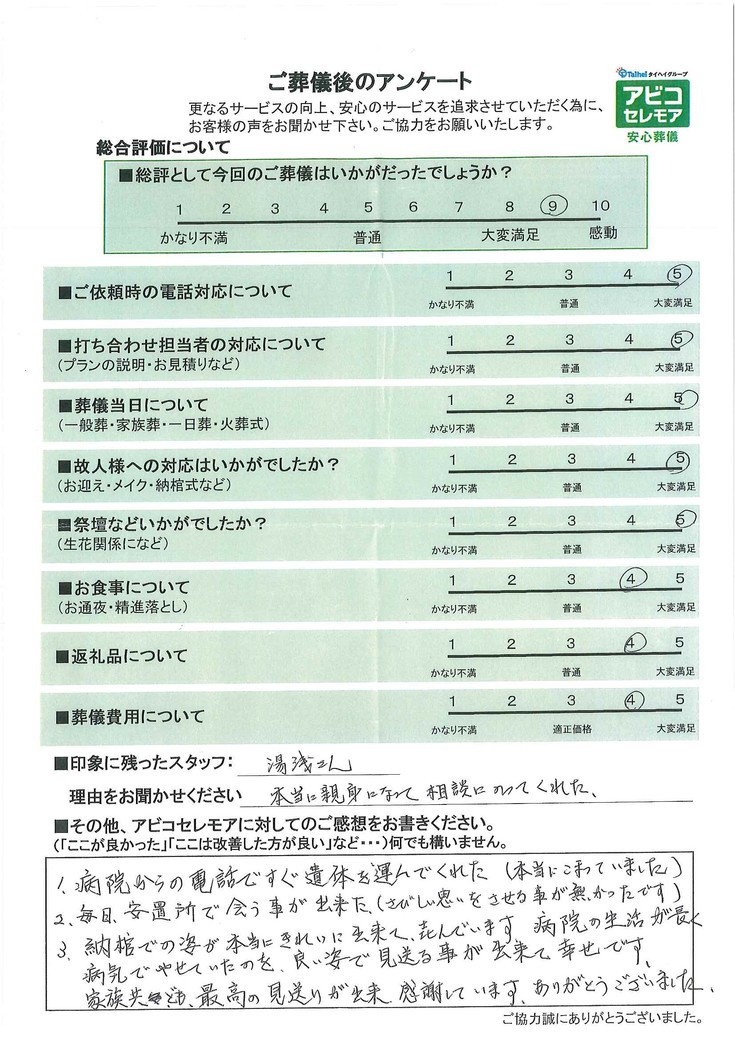 ご葬儀後のアンケート
Taihei タイヘイグループ
アビコ
セレモア
安心葬儀
更なるサービスの向上、安心のサービスを追求させていただく為に、
お客様の声をお聞かせ下さい。ご協力をお願いいたします。
総合評価について
■総評として今回のご葬儀はいかがだったでしょうか?
1 2 3 4 5 6 7 8 9 10
かなり不満 普通 大変満足 感動
■ご依頼時の電話対応について
1 2 3 4 5
かなり不満 普通 大変満足
■打ち合わせ担当者の対応について
(プランの説明・お見積りなど)
1 2 3 4 5
かなり不満 普通 大変満足
■葬儀当日について
(一般葬・家族葬・一日葬・火葬式)
1 2 3 4 5
かなり不満 普通 大変満足
■故人様への対応はいかがでしたか?
(お迎え・メイク・納棺式など)
1 2 3 4 5
かなり不満 普通 大変満足
■祭壇などいかがでしたか?
(生花関係になど)
1 2 3 4 5
かなり不満 普通 大変満足
■お食事について
(お通夜・精進落とし)
1 2 3 4 5
かなり不満 普通 大変満足
■返礼品について
1 2 3 4 5
かなり不満 普通 大変満足
■葬儀費用について
1 2 3 4 5
かなり不満 適正価格 大変満足
■印象に残ったスタッフ: 湯浅さん
理由をお聞かせください 本当に親身になって相談にのってくれた、
■その他、アビコセレモアに対してのご感想をお書きください。
(「ここが良かった」「ここは改善した方が良い」など・・・)何でも構いません。
1、病院からの電話ですぐ遺体を運んでくれた (本当にこまっていました)
2、毎日、安置所で会う事が出来た、(さびしい思いをさせる事が無かったです)
3、納棺での姿が本当にきれいに出来て、喜んでいます 病院の生活が長く
病気でやせていたのを、良い姿で見送る事が出来て幸せです、
家族共ども、最高の見送りが出来 感謝しています、ありがとうございました、
ご協力誠にありがとうございました。